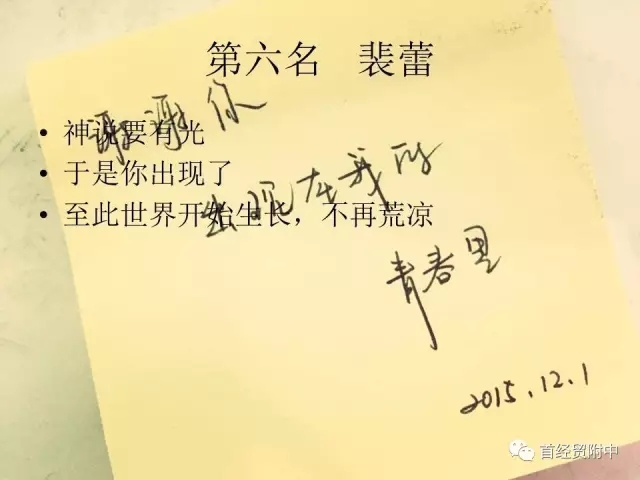 第六名 裴蕾
谢谢你
• 神说要有光
• 于是你出现了
出现在我的
• 至此世界开始生长，不再荒凉
青春里
2015.12.1
首经贸附中